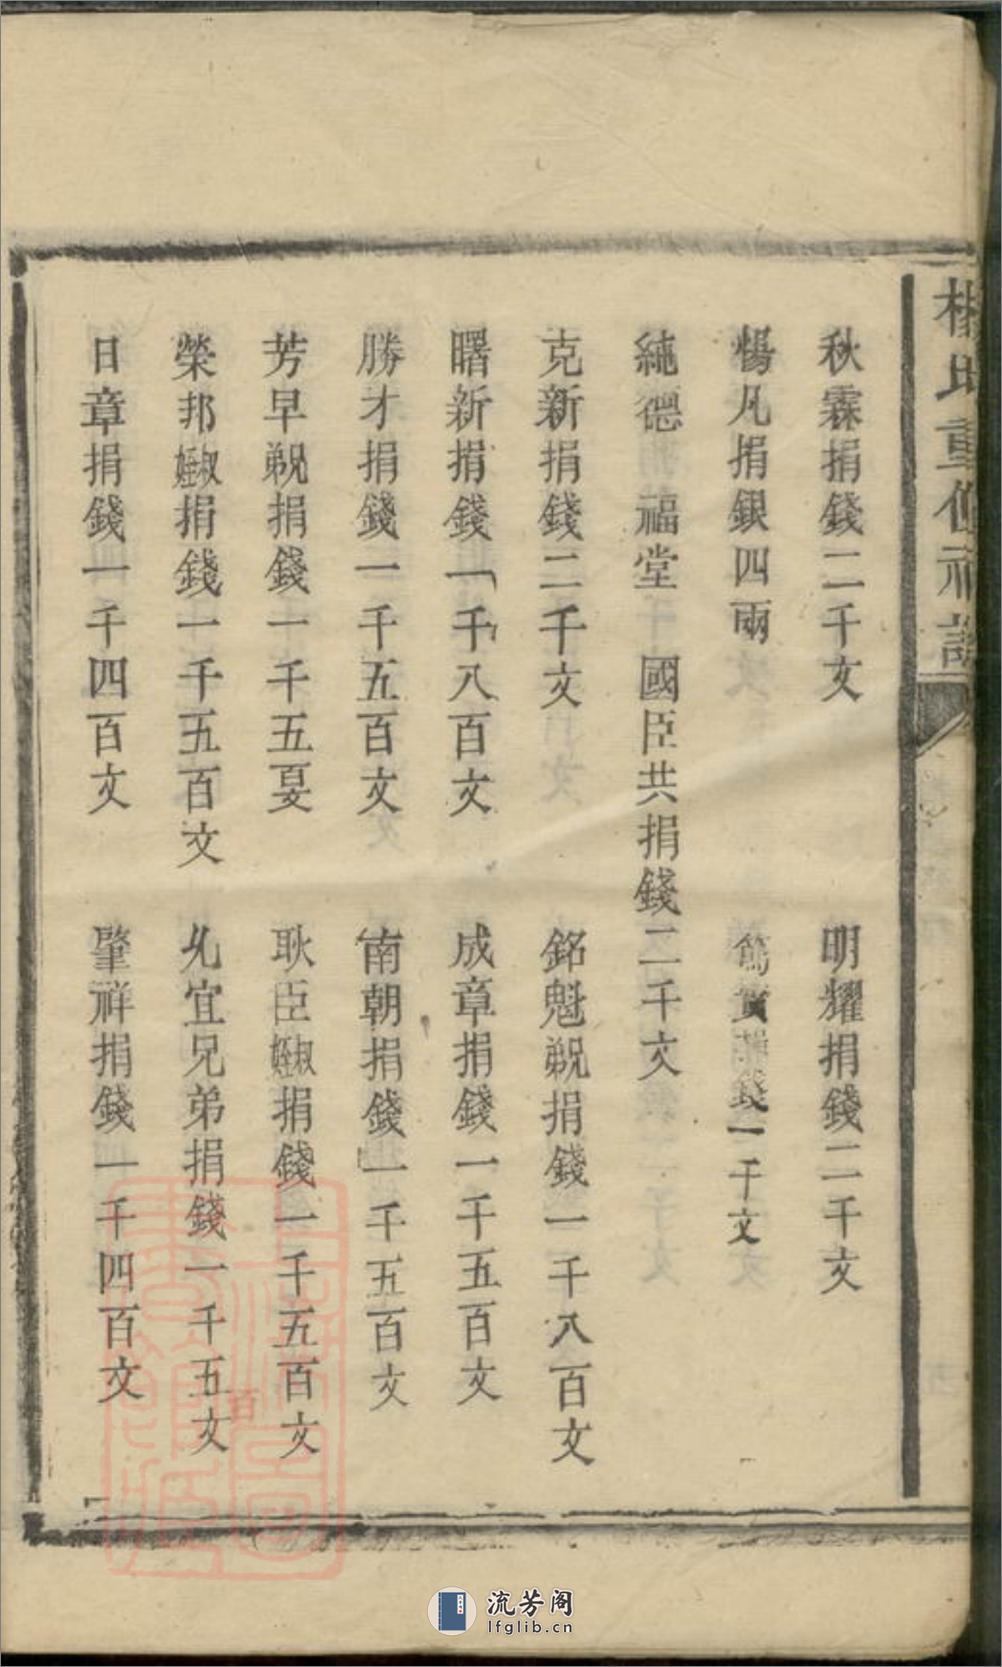 楊氏重修祠譜
秋霖捐錢二千文 明耀捐錢二千文
惕凡捐銀四兩 篤實捐錢一千文
純德 福堂 國臣共捐錢二千文
克新捐錢二千文 銘魁捐錢一千八百文
曙新捐錢一千八百文 成章捐錢一千五百文
勝才捐錢一千五百文 南朝捐錢一千五百文
芳早捐錢一千五 耿臣叔姪捐錢一千五百文
榮邦叔姪捐錢一千五百文 允宜兄弟捐錢一千五百文
日章捐錢一千四百文 肇祥捐錢一千四百文
流芳阁
lfglib.cn